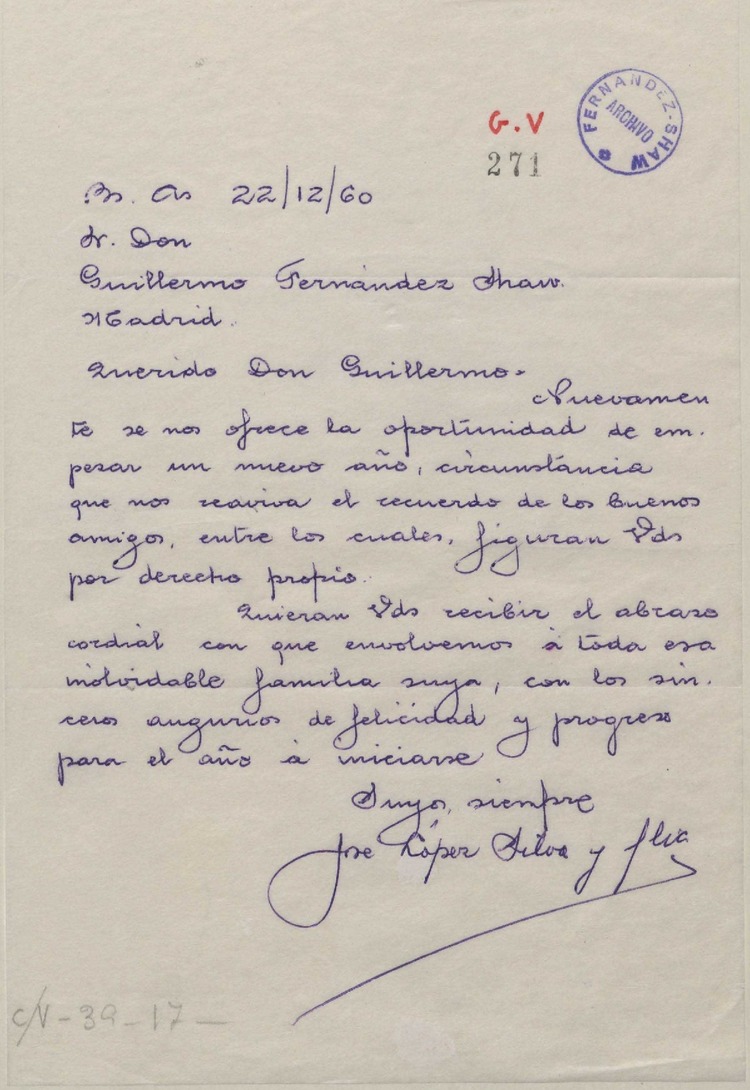 G.V
FERNANDEZ-SHAW
ARCHIVO
271
Bs. As 22/12/60
Sr. Don
Guillermo Fernández Shaw.
Madrid.
Querido Don Guillermo-
Nuevamen
te se nos ofrece la oportunidad de em.
pesar un nuevo año, circunstáncia
que nos reaviva el recuerdo de los buenos
amigos, entre los cuales, figuran Vds
por derecho propio.
Quieran Vds recibir el abraso
cordial con que envolvemos á toda esa
inolvidable familia suya, con los sin.
ceros augurios de felicidad y progreso
para el año á iniciarse
Suyo, siempre
José López Silva y flia
C/V-39-17-